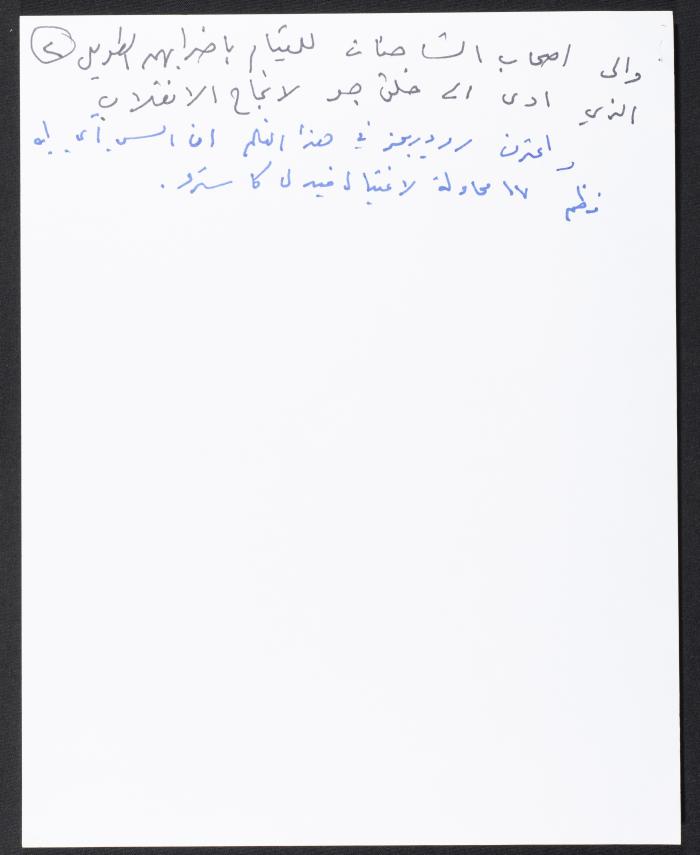 والى اصحاب الشاحنات للقيام باضرابهم الطويل ②
الذي ادى الى خلق جو لانجاح الانقلاب
واعترف رودريجز في هذا الفلم ان السي. آي. ايه
نظم ١٧ محاولة لاغتيال فيدل كاسترو.